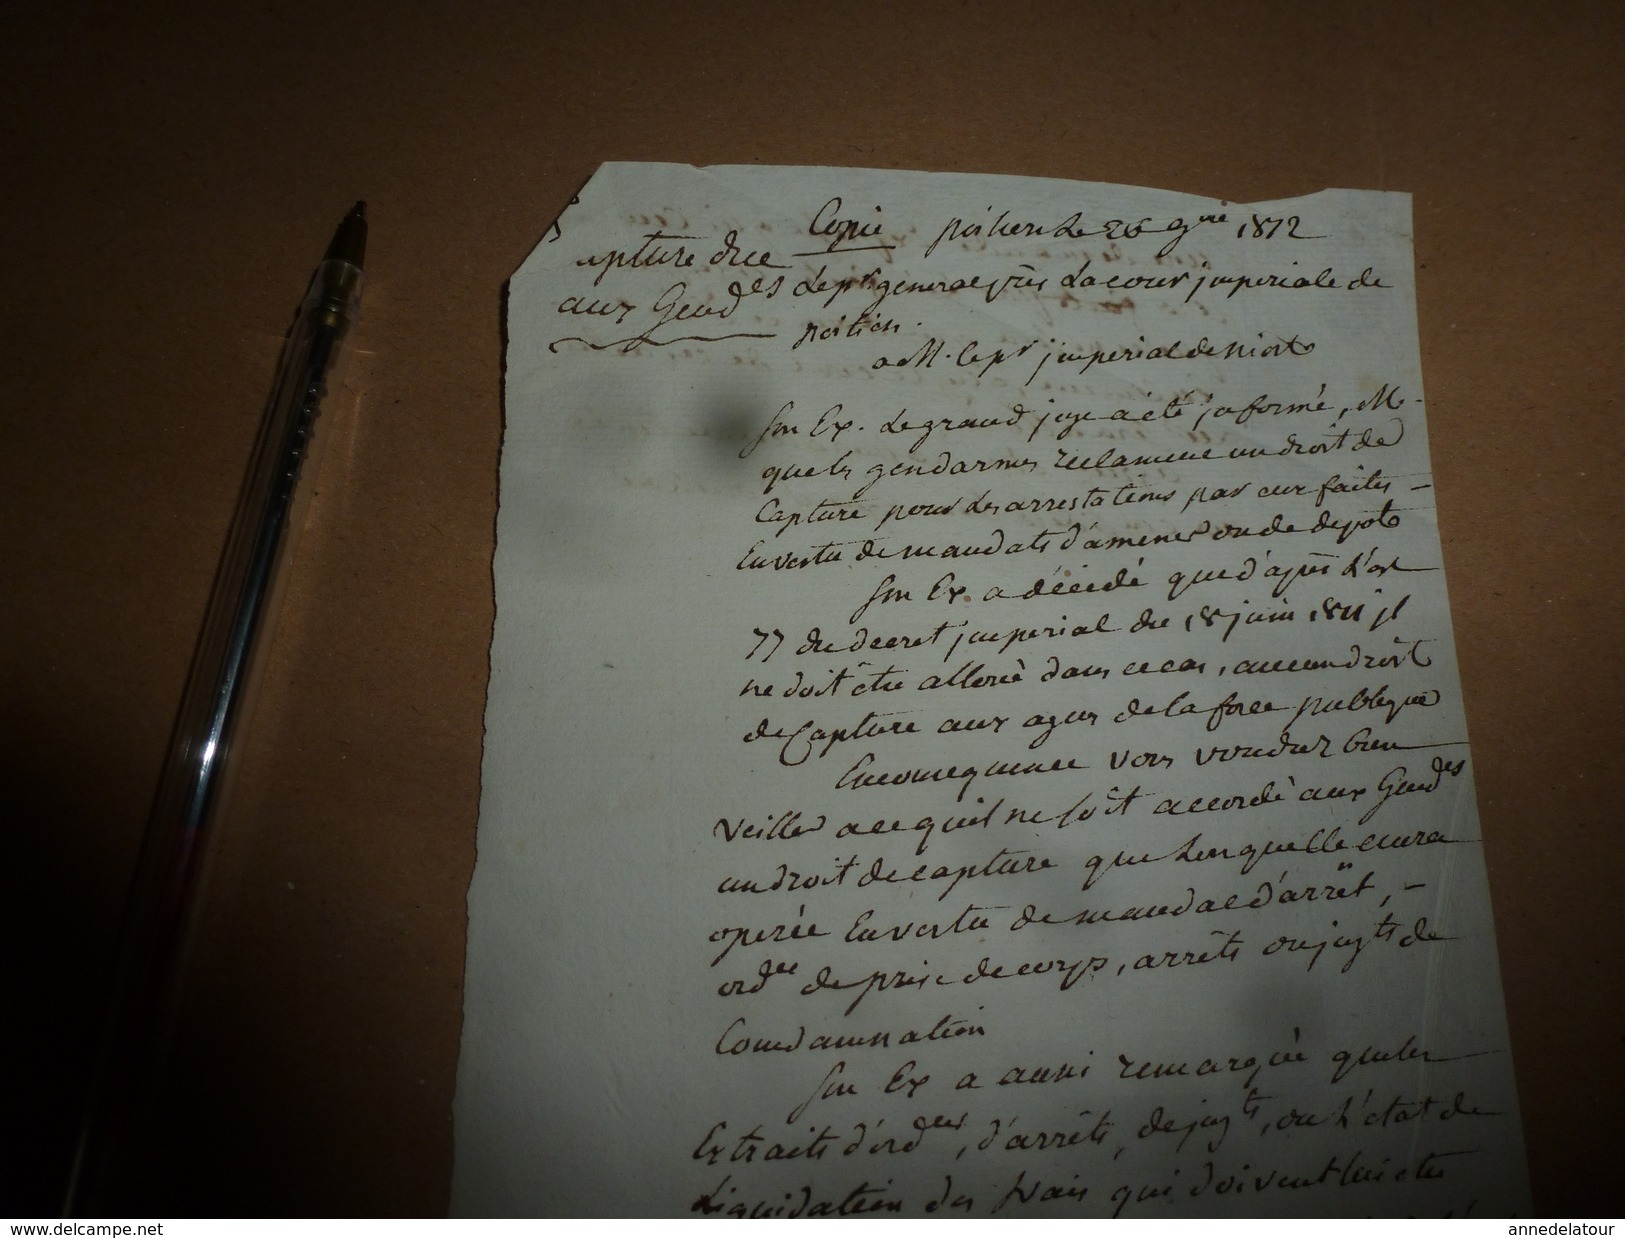 Copie poitiers Le 26 9bre 1812
apture due
aux Gendes
Le pr. general près La cour jmperiale de
poitiers.
a M. le pr jmperial de niort
Son Ex. Le grand juge a été jnformé, M.
que les gendarmes reclament un droit de
Capture pour les arrestations par eux faites –
En vertu de mandats d'amener ou de depôt
Son Ex. a décidé que d'après L'art
77 du decret jmperial du 18 juin 1811 jl
ne doit être alloué dans ce cas, aucun droit
de Capture aux agens de la force publique
En consequence vous voudrez bien
veiller a ce quil ne soit accordé aux Gendes
un droit de capture que lorsquelle aura
operée En vertu de mandat d'arrêt, –
ordce de prise de corps, arrêts ou jugts de
Condamnation
Son Ex a aussi remarqué que les
Extraits d'ordces, d'arrêts, de jugts, ou L'état de
Liquidation des frais qui doivent lui être
delcampe.net
annedelatour